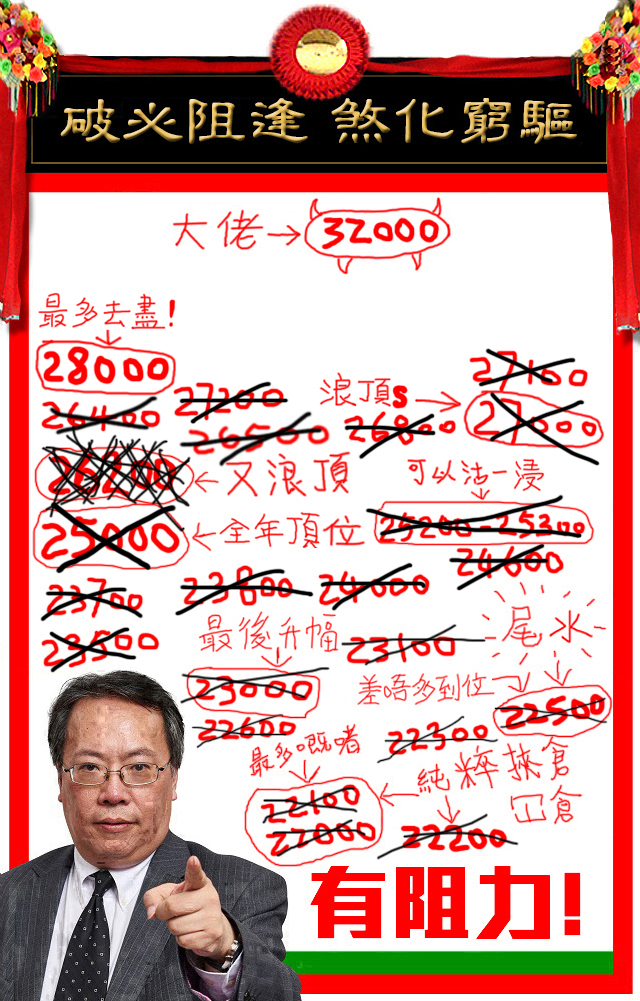 破必阻逢 煞化窮驅
大佬→32000
最多去盡!
28000
27100
26400
27200
浪頂s→
27000
26500
26800
26200
←又浪頂
可以沽一浸
25000
←全年頂位
25200-25300
24600
23700
23800
24000
23500
最後升幅
23100
尾水
23000
差唔多到位
22500
22600
22300
最多嘅啫
22100
22000
←純粹挾倉
冚倉
22200
有阻力!